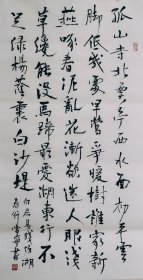 孤山寺北賈亭西水面初平雲
脚低幾處早鶯爭暖樹誰家新
燕啄春泥亂花漸欲迷人眼淺
草纔能沒馬蹄最愛湖東行不
足綠楊蔭裏白沙堤
白居易錢塘湖
春行